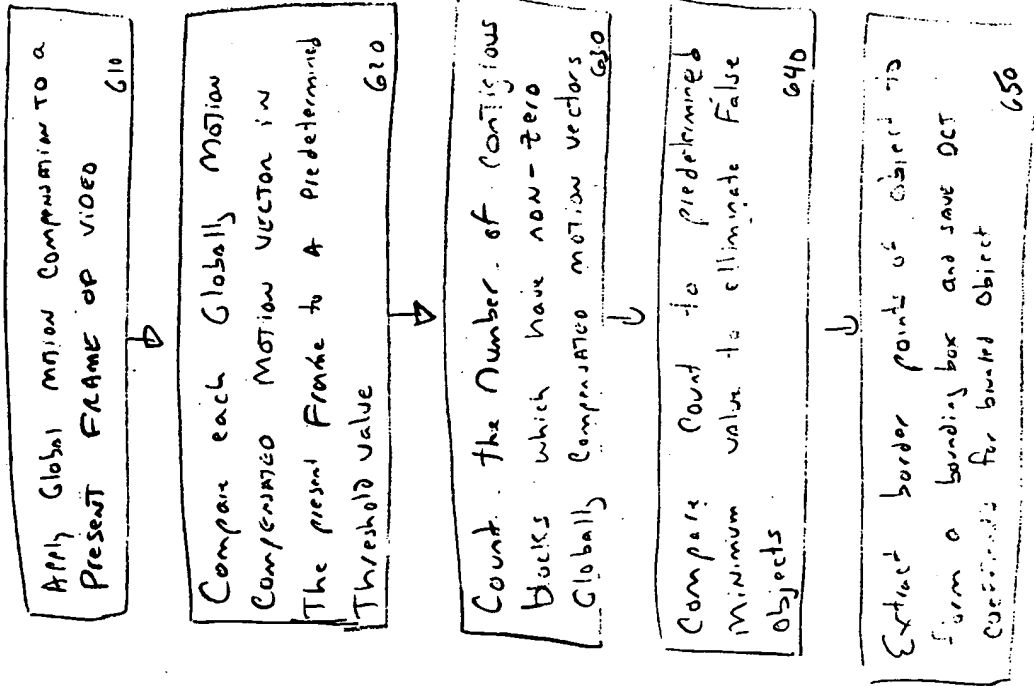 Apply Global Motion Compensation To a
Present FRAME OF VIDEO
610
Compare each Globally Motion
Compensated Motion Vector in
The present Frame to A Predetermined
Threshold Value
620
Count the Number of Contigious
blocks which have non-zero
Globally Compensated motion vectors
630
Compare Count to predetermined
Minimium value to elliminate False
Objects
640
Extract border points of object to
Form a bounding box and save DCT
for bounded Object
650